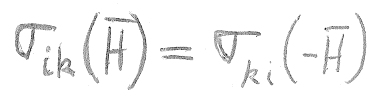 σ_{ik}(H̄) = σ_{ki}(-H̄)